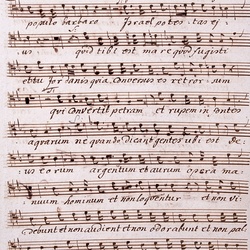 populo barbaro Israel potestas ej
us quid tibi est mare quod fugisti
et tu Jordanis quia conversus es retrorsum
qui convertit petram et rupem in fontes
aquarum ne quando dicant gentes ubi est De
us eorum argentum et aurum opera ma
nuum hominum et non loquentur et non vi
debunt et non audient et non odorabunt et non pal